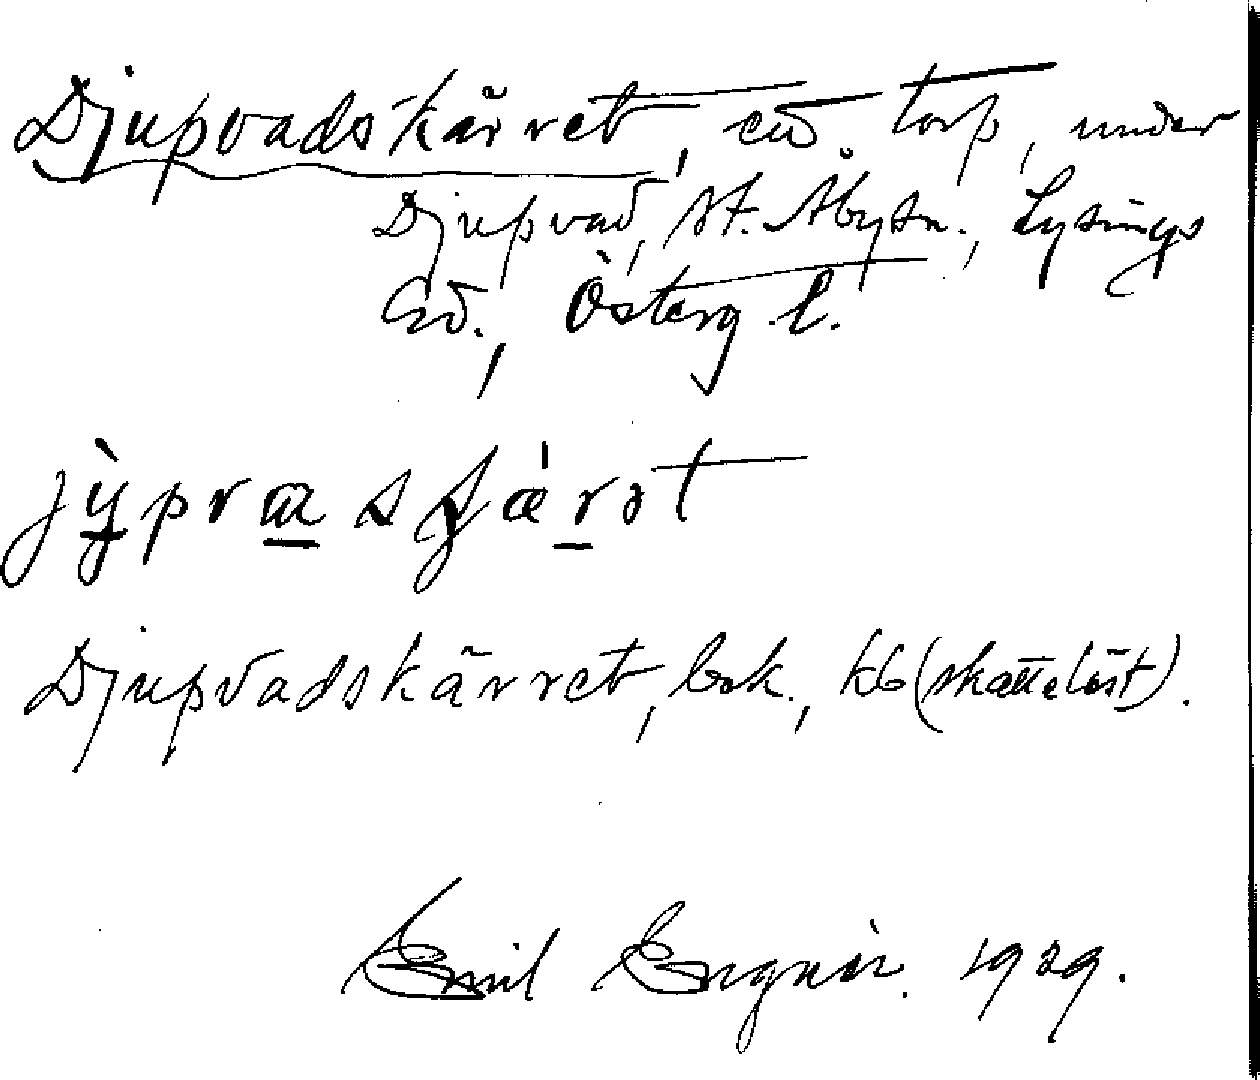 Djupvadskärret, ett torp, under
Djupvad, St. Åby sn., Lysings
hd., Österg. l.
Djupvadskärret, bok., kb (skattelöst).
Emil Engnér. 1929.